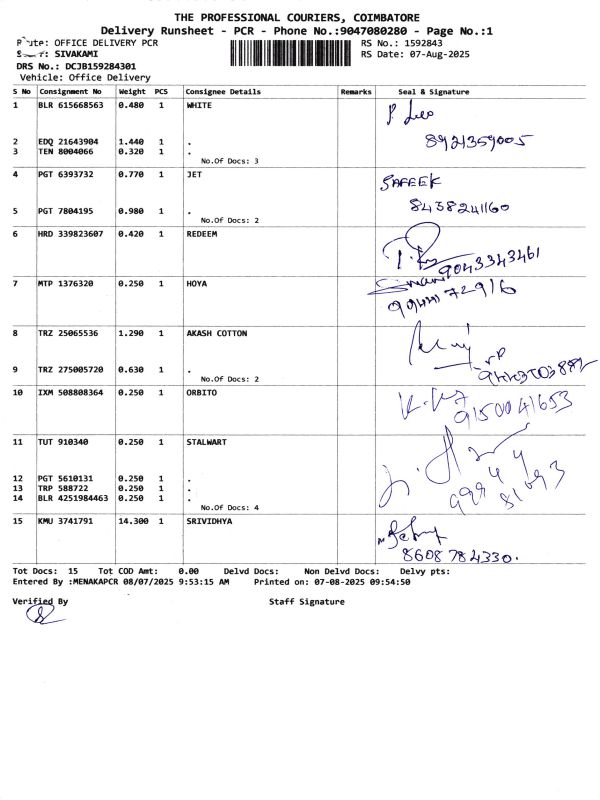 THE PROFESSIONAL COURIERS, COIMBATORE
Delivery Runsheet - PCR - Phone No.:9047080280 - Page No.:1
OFFICE DELIVERY PCR RS No.: 1592843
SIVAKAMI RS Date: 07-Aug-2025
DRS No.: DCJB159284301
Vehicle: Office Delivery
S No Consignment No Weight PCS Consignee Details Remarks Seal & Signature
1 BLR 615668563 0.480 1 WHITE
8921359005
2 EDQ 21643904 1.440 1 .
3 TEN 8004066 0.320 1 .
No.Of Docs: 3
4 PGT 6393732 0.770 1 JET SAFEEK
5 PGT 7804195 0.980 1 . 8438241160
No.Of Docs: 2
6 HRD 339823607 0.420 1 REDEEM
9043343461
7 MTP 1376320 0.250 1 HOYA
8 TRZ 25065536 1.290 1 AKASH COTTON
9 TRZ 275005720 0.630 1 .
No.Of Docs: 2
10 IXM 508808364 0.250 1 ORBITO
9150041653
11 TUT 910340 0.250 1 STALWART
12 PGT 5610131 0.250 1 .
13 TRP 588722 0.250 1 .
14 BLR 4251984463 0.250 1 .
No.Of Docs: 4
15 KMU 3741791 14.300 1 SRIVIDHYA
8608784330.
Tot Docs: 15 Tot COD Amt: 0.00 Delvd Docs: Non Delvd Docs: Delvy pts:
Entered By :MENAKAPCR 08/07/2025 9:53:15 AM Printed on: 07-08-2025 09:54:50
Verified By Staff Signature